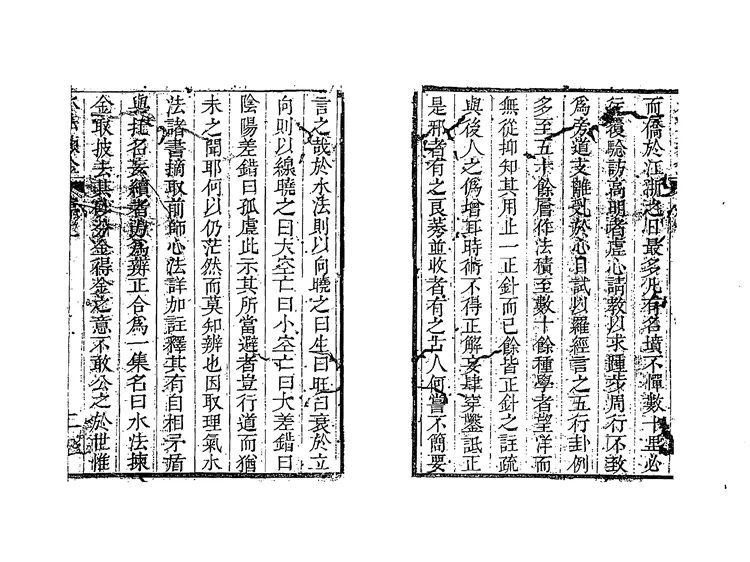 而僑於江浙之日最多凡有名墳不憚數十里必
往復驗訪高明者虛心請教以求踵步周行不敢
為旁道支離亂於心目試以羅經言之五行卦例
多至五十餘層作法積至數十餘種學者望洋而
無從抑知其用止一正針而已餘皆正針之註疏
與後人之偽增耳時術不得正解妄肆穿鑿詆正
是邪者有之良莠並收者有之古人何嘗不簡要
言之哉於水法則以向曉之曰生曰旺曰衰於立
向則以線曉之曰大空亡曰小空亡曰大差錯曰
陰陽差錯曰孤虛此示其所當避者豈行道而猶
未之聞耶何以仍茫然而莫知辨也因取理氣水
法諸書摘取前師心法詳加註釋其有自相矛盾
與託名 續者 為辨正合為一集名曰水法揀
金取披去其 沙 金得金之意不敢公之於世惟
水法揀金